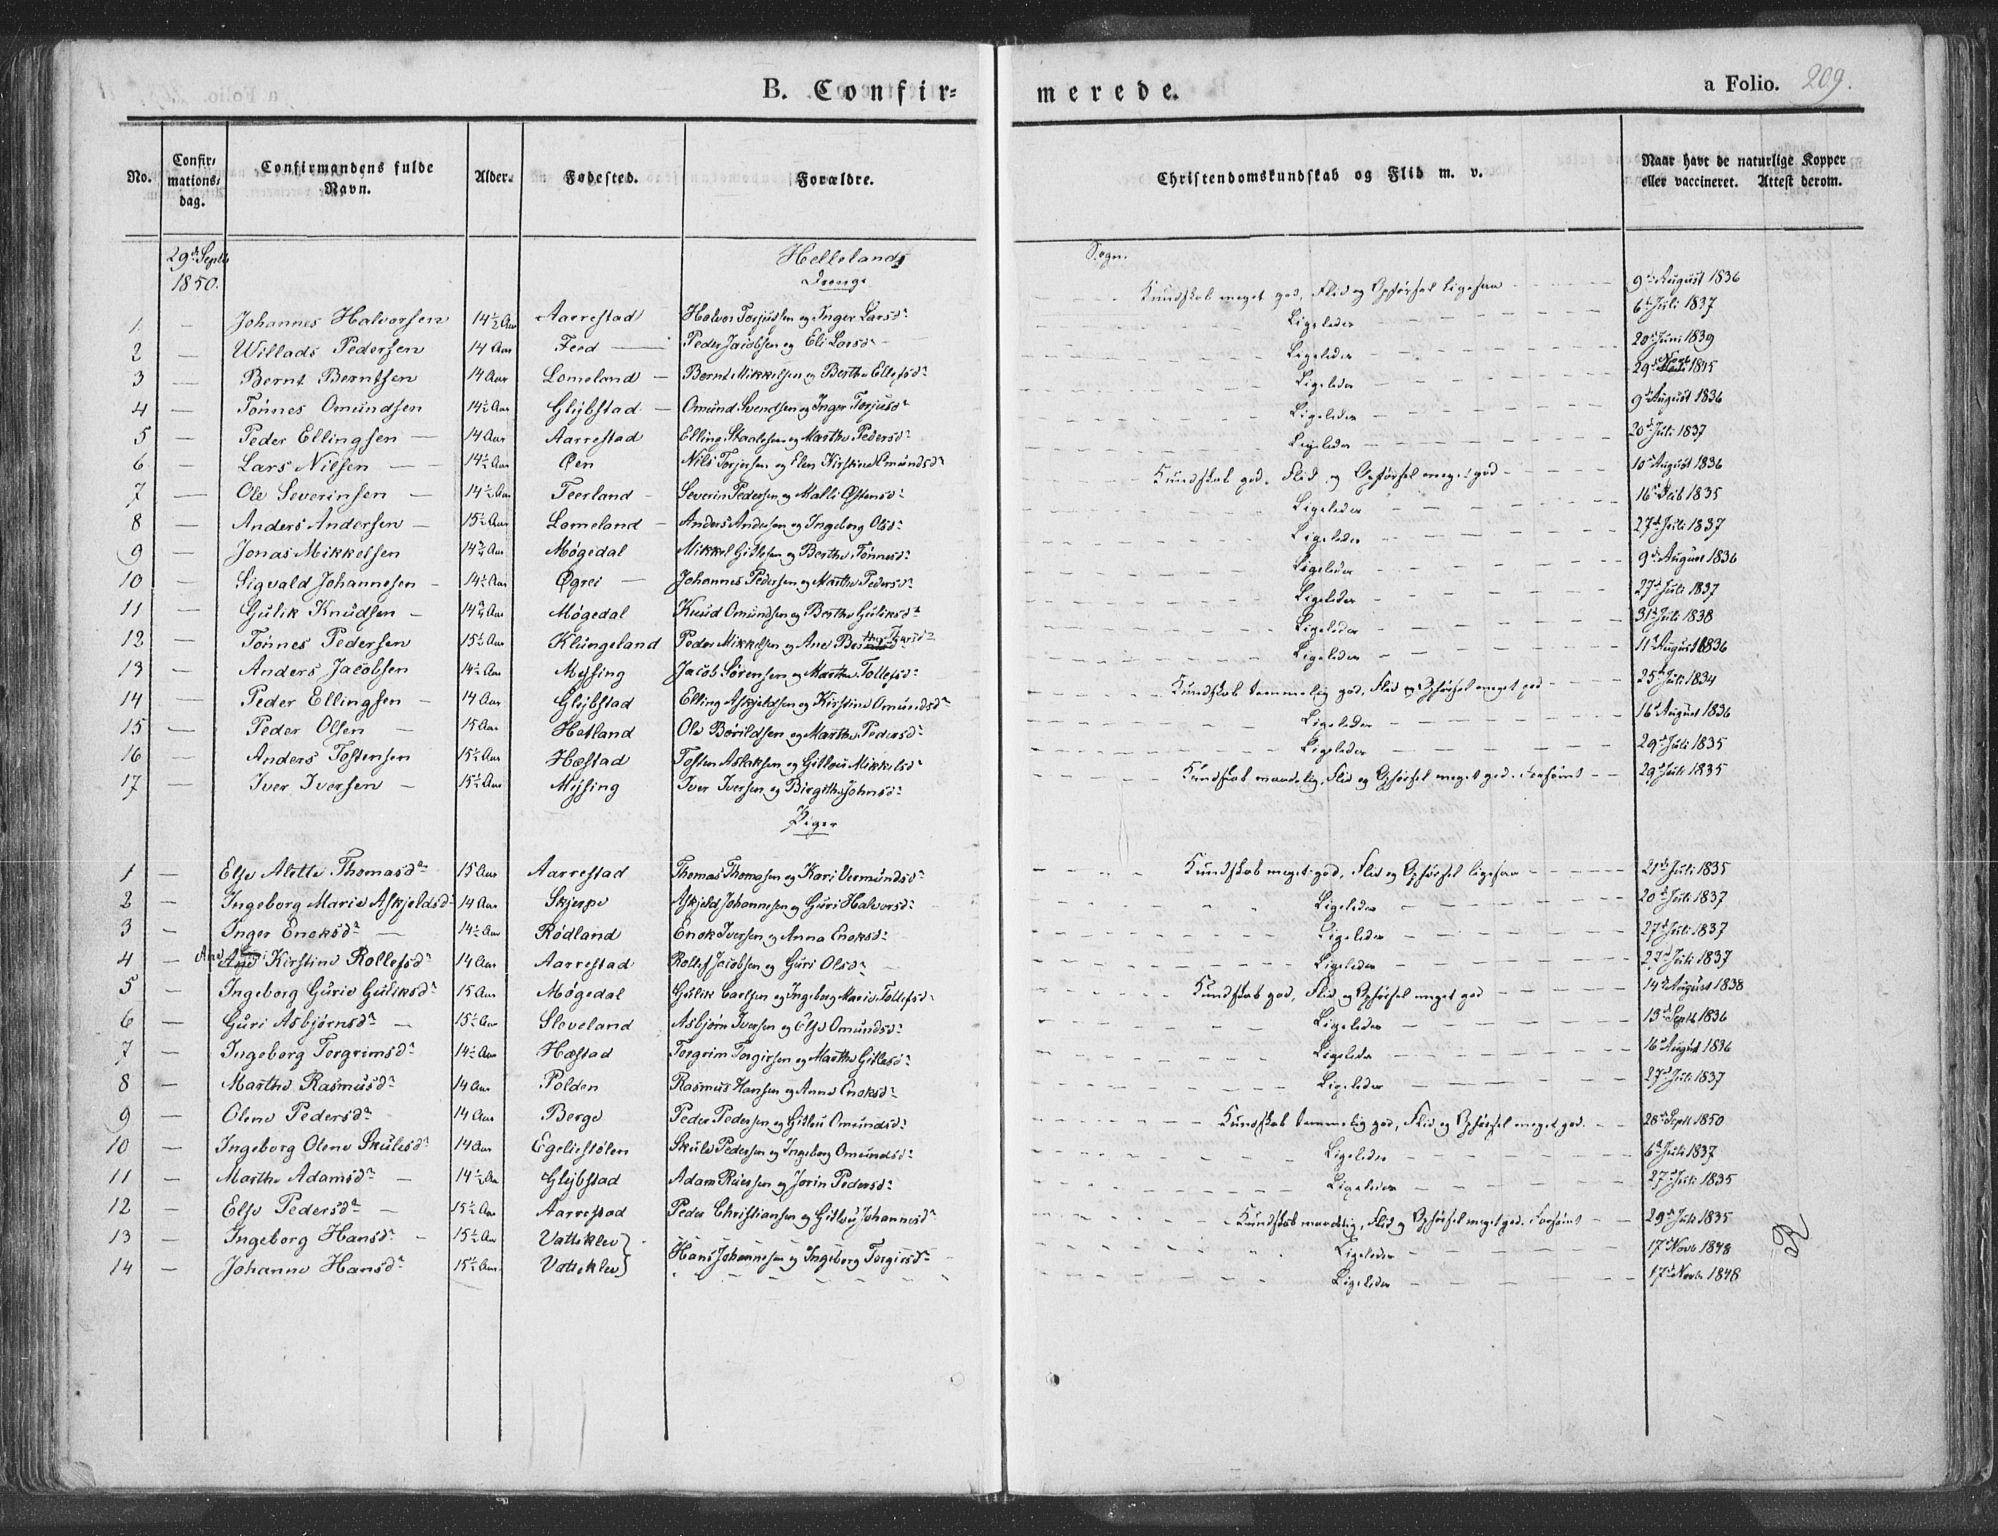 B. Confirmerede.
a Folio. 209.
No. Confirmationsdag. Confirmandens fulde Navn. Alder. Fødested. Forældre. Christendomskundskab og Flid m. v. Naar havt de naturlige Kopper eller vaccineret. Attest derom.
29de Septb 1850. Hellelands Sogn.
Drenge
1 — Johannes Halvorsen 14½ Aar Aarrestad Halvor Torjusen og Inger Larsdr Kundskab meget god, Flid og Opførsel ligesaa 9de August 1836
2 — Willads Pedersen 14 Aar Feed — Peder Jacobsen og Eli Larsdr Ligeledes 6te Juli 1837
3 — Bernt Berntsen 14 Aar Lomeland — Bernt Mikkelsen og Berthe Ellefsdr Ligeledes 20de Juni 1839
4 — Tönnes Omundsen 14½ Aar Glybstad — Omund Svendsen og Inger Torjusdr Ligeledes 29de Novb 1845
5 — Peder Ellingsen — 14 Aar Aarrestad Elling Staalesen og Marthe Pedersdr Ligeledes 9de August 1836
6 — Lars Nilsen — 14½ Aar Øen Nils Torjersen og Elen Kirstine Omundsdr Ligeledes 20de Juli 1837
7 — Ole Severinsen — 14½ Aar Teerland — Severin Pedersen og Malli Østensdr Kundskab god, Flid og Opførsel meget god 10de August 1836
8 — Anders Andersen — 15½ Aar Lomeland — Anders Andersen og Ingeborg Olsdr Ligeledes 16de Juli 1835
9 — Jonas Mikkelsen 14¾ Aar Møgedal Mikkel Gitlesen og Berthe Tønnesdr Ligeledes 27de Juli 1837
10 — Sigvald Johannesen — 14½ Aar Øgrei — Johannes Pedersen og Marthe Pedersdr Ligeledes 9de August 1836
11 — Gulik Knudsen — 14¾ Aar Møgedal Knud Omundsen og Berthe Guliksdr Ligeledes 27de Juli 1837
12 — Tönnes Pedersen 15½ Aar Klungeland Peder Mikkelsen og Ane Ligeledes 31te Juli 1838
13 — Anders Jacobsen 14½ Aar Myssing Jacob Sørensen og Marthe Tollefsdr Ligeledes 11te August 1836
14 — Peder Ellingsen — 14 Aar Glybstad Elling Askjeldsen og Kirstine Omundsdr Kundskab temmelig god, Flid og Opførsel meget god 25de Juli 1834
15 — Peder Olsen — 15 Aar Hetland Ole Børildsen og Marthe Pedersdr Ligeledes 16de August 1836
16 — Anders Tostensen 15½ Aar Hæstad Tosten Aslaksen og Gitlou Mikkelsdr Ligeledes 29de Juli 1835
17 — Iver Iversen — 15½ Aar Myssing Iver Iversen og Birgithe Johnsdr Kundskab maadelig, Flid og Opførsel meget god. Forsømt 29de Juli 1835
Piger
1 — Else Alette Thomasdr 15 Aar Aarrestad Thomas Thomasen og Kari Vermundsdr Kundskab meget god, Flid og Opførsel ligesaa 21de Juli 1835
2 — Ingeborg Marie Askjeldsdr 14 Aar Skjerpe Askjeld Johannesen og Guri Halvorsdr Ligeledes 20de Juli 1837
3 — Inger Enoksdr — 14½ Aar Rødland Enok Iversen og Anna Enoksdr Ligeledes 27de Juli 1837
4 — Ane Kirstine Rollefsdr 14 Aar Aarrestad Rollef Jacobsen og Guri Olsdr Ligeledes 27de Juli 1837
5 — Ingeborg Gurie Guliksdr 15 Aar Møgedal Gulik Carlsen og Ingeborg Marie Tollefsdr Kundskab god, Flid og Opførsel meget god 14de August 1838
6 — Guri Asbjørnsdr — 15½ Aar Sleveland Asbjørn Iversen og Else Omundsdr Ligeledes 13de Septb 1836
7 — Ingeborg Torgrimsdr 14½ Aar Hæstad Torgrim Torgirsen og Marthe Gitlesdr Ligeledes 16de August 1836
8 — Marthe Rasmusdr 14 Aar Polden Rasmus Hansen og Anne Enoksdr Ligeledes 27de Juli 1837
9 — Olene Pedersdr 14 Aar Berge Peder Pedersen og Gitlou Omundsdr Kundskab temmelig god, Flid og Opførsel meget god. 28de Septb 1850
10 — Ingeborg Olene Skulesdr 14 Aar Egeliestølen Skule Pedersen og Ingeborg Omundsdr Ligeledes 6te Juli 1837
11 — Marthe Adamsdr — 14½ Aar Glybstad Adam Reiersen og Jorin Pedersdr Ligeledes 27de Juli 1835
12 — Else Pedersdr — 15½ Aar Aarrestad Peder Christiansen og Gitlou Johannesdr Kundskab maadelig, Flid og Opførsel meget god. Forsømt 29de Juli 1835
13 — Ingeborg Hansdr — 15½ Aar Vatteklev } Hans Johannesen og Ingeborg Torgirsdr Ligeledes 17de Novb 1848
14 — Johanne Hansdr 15½ Aar Vatteklev } Ligeledes 17de Novb 1848